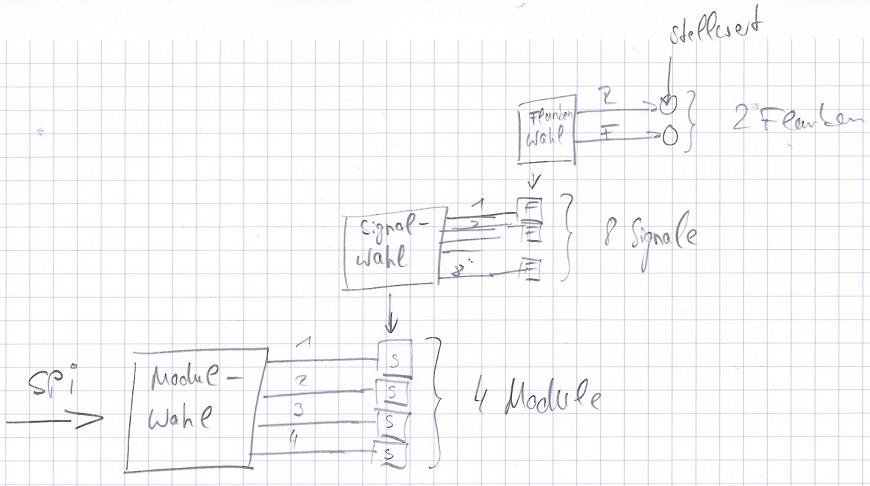 Stellwert
R
Flanken
wahl
F
2 Flanken
1
F
Signal-
wahl
2
F
8 Signale
8
F
1
S
SPi
Modul-
wahl
2
S
3
S
4 Module
4
S